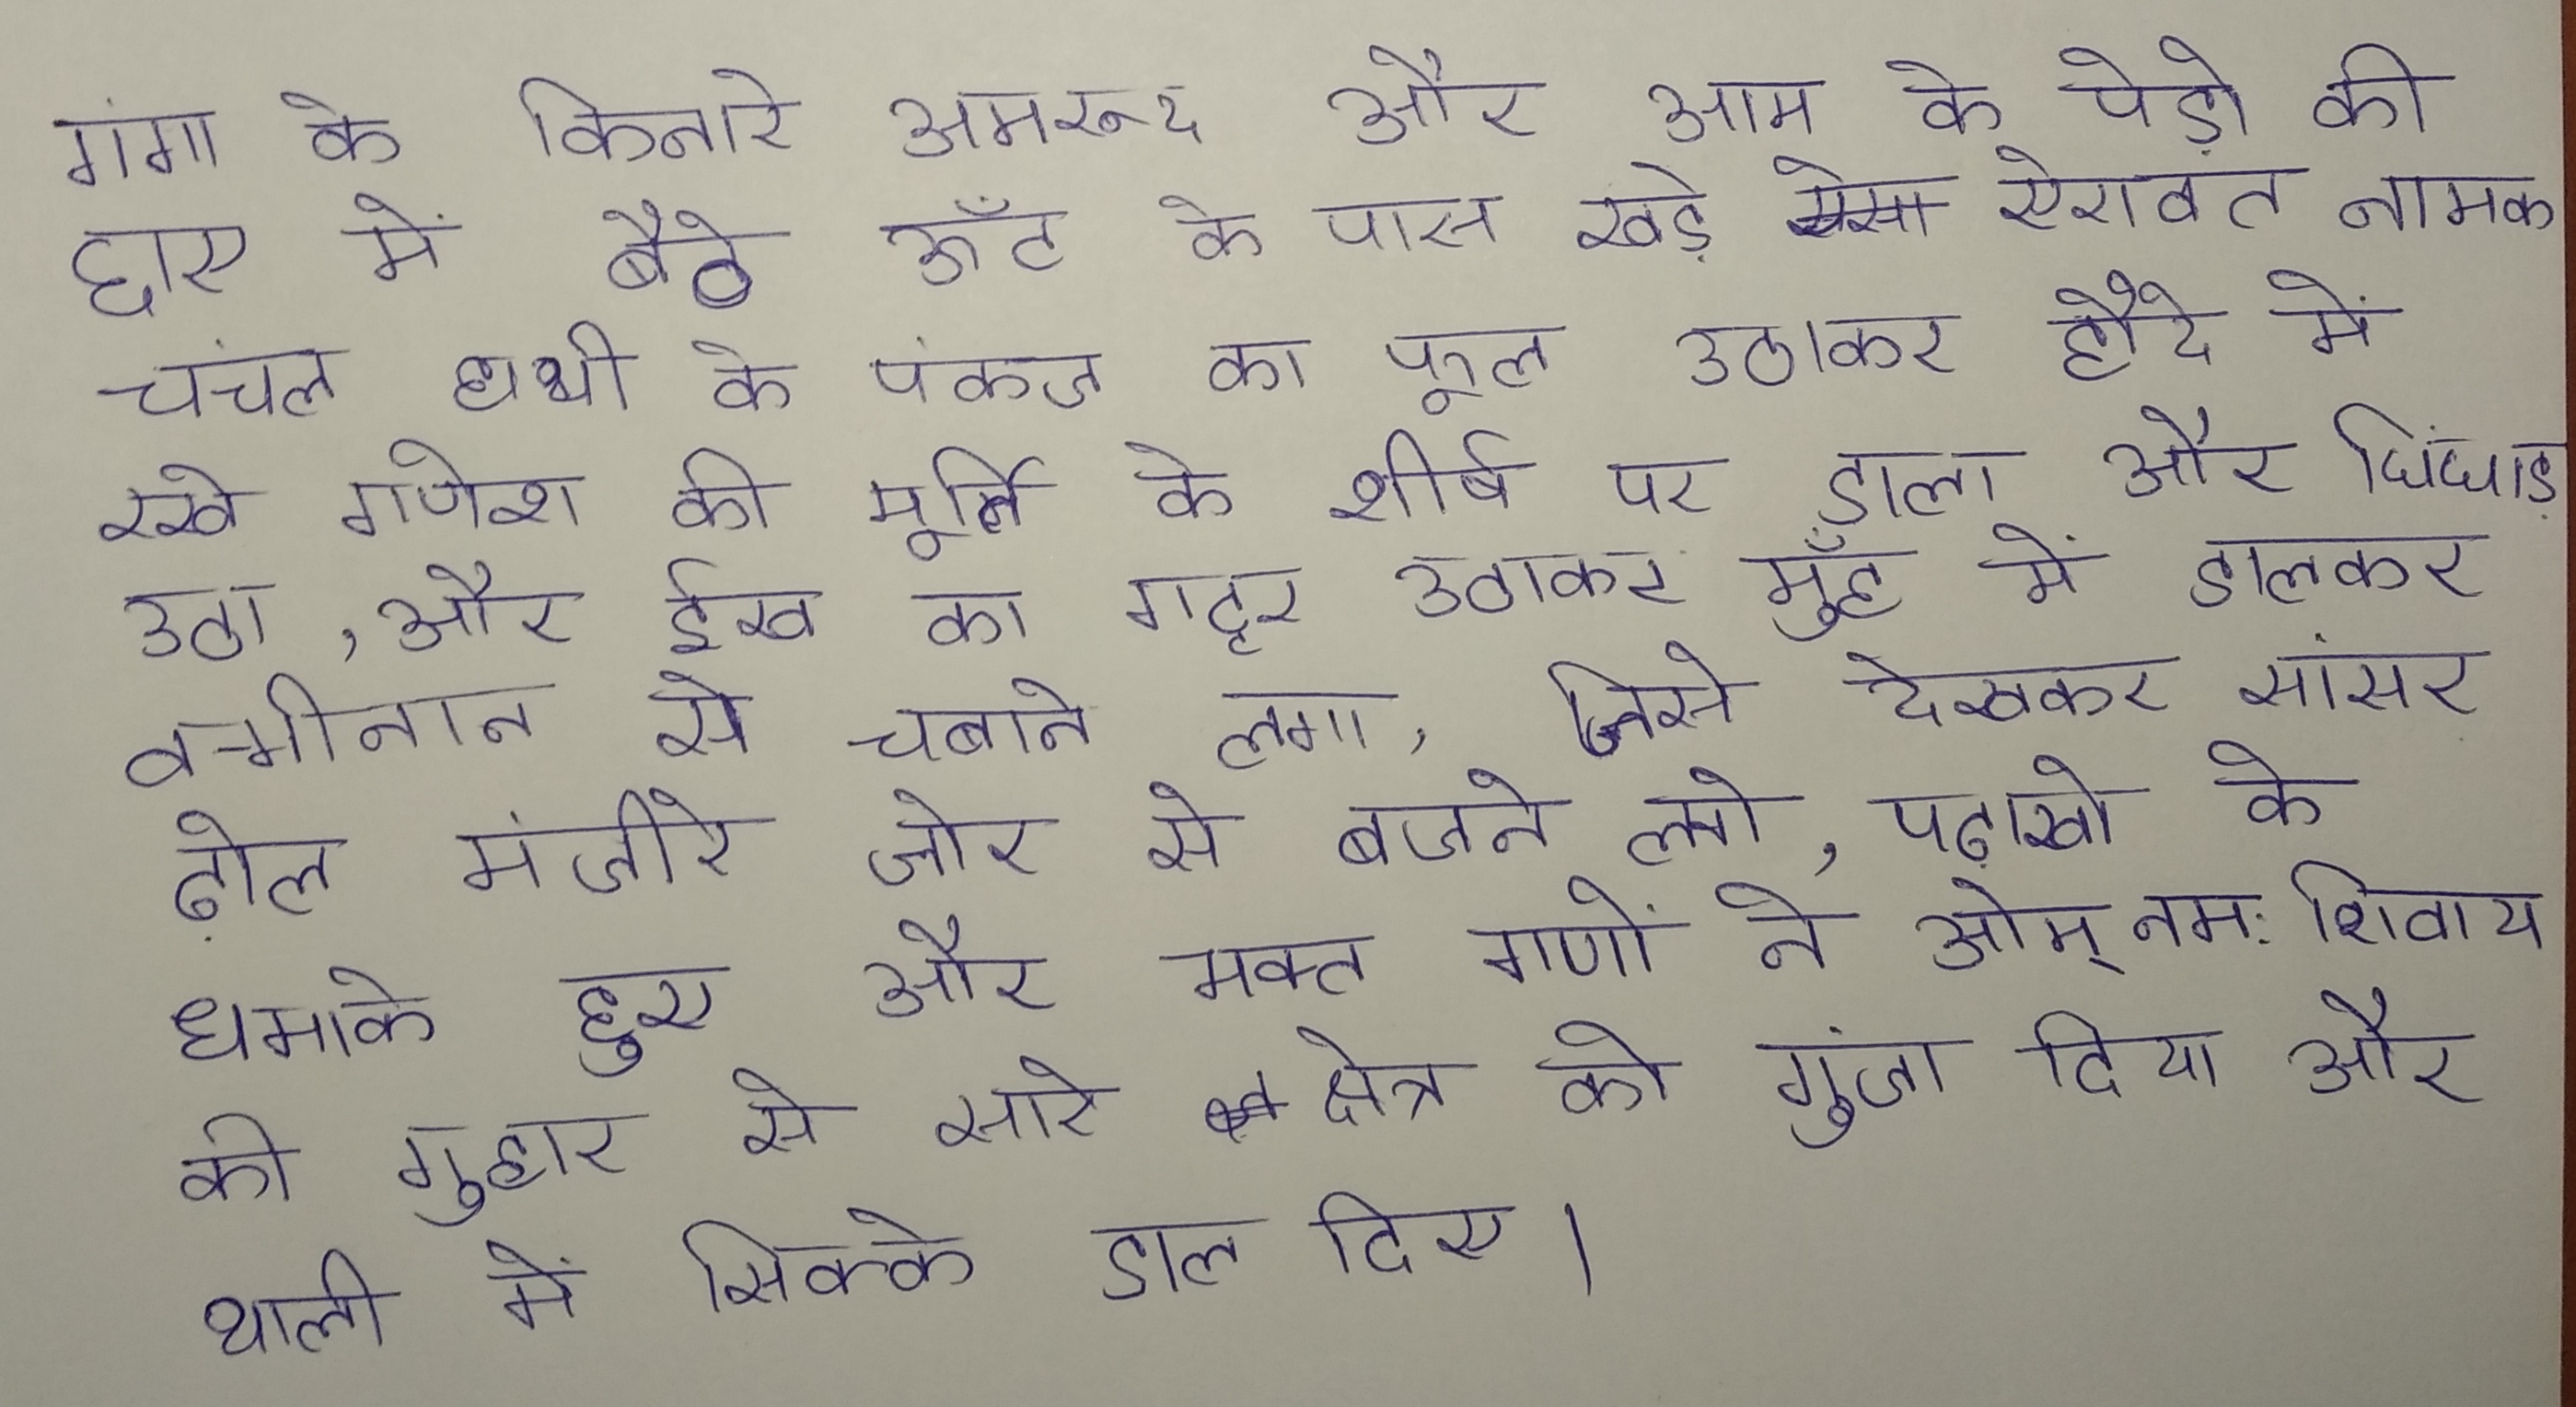 गंगा के किनारे अमरूद और आम के पेड़ो की
छाए में बैठे ऊँट के पास खड़े ऐरावत नामक
चंचल हाथी के पंकज का फूल उठाकर हौदे में
रखे गणेश की मूर्ति के शीर्ष पर ड़ाला और घिंघाड़
उठा , और ईख का गट्टर उठाकर मुँह में डालकर
से चबाने लगा, जिसे देखकर सांसर
ढ़ोल मंजीरे जोर से बजने लगे, पढ़ाखो के
धमाके हुए और भक्त गणों ने ओम् नमः शिवाय
की गुहार से सारे क्षेत्र को गुंजा दिया और
थाली में सिक्के डाल दिए ।